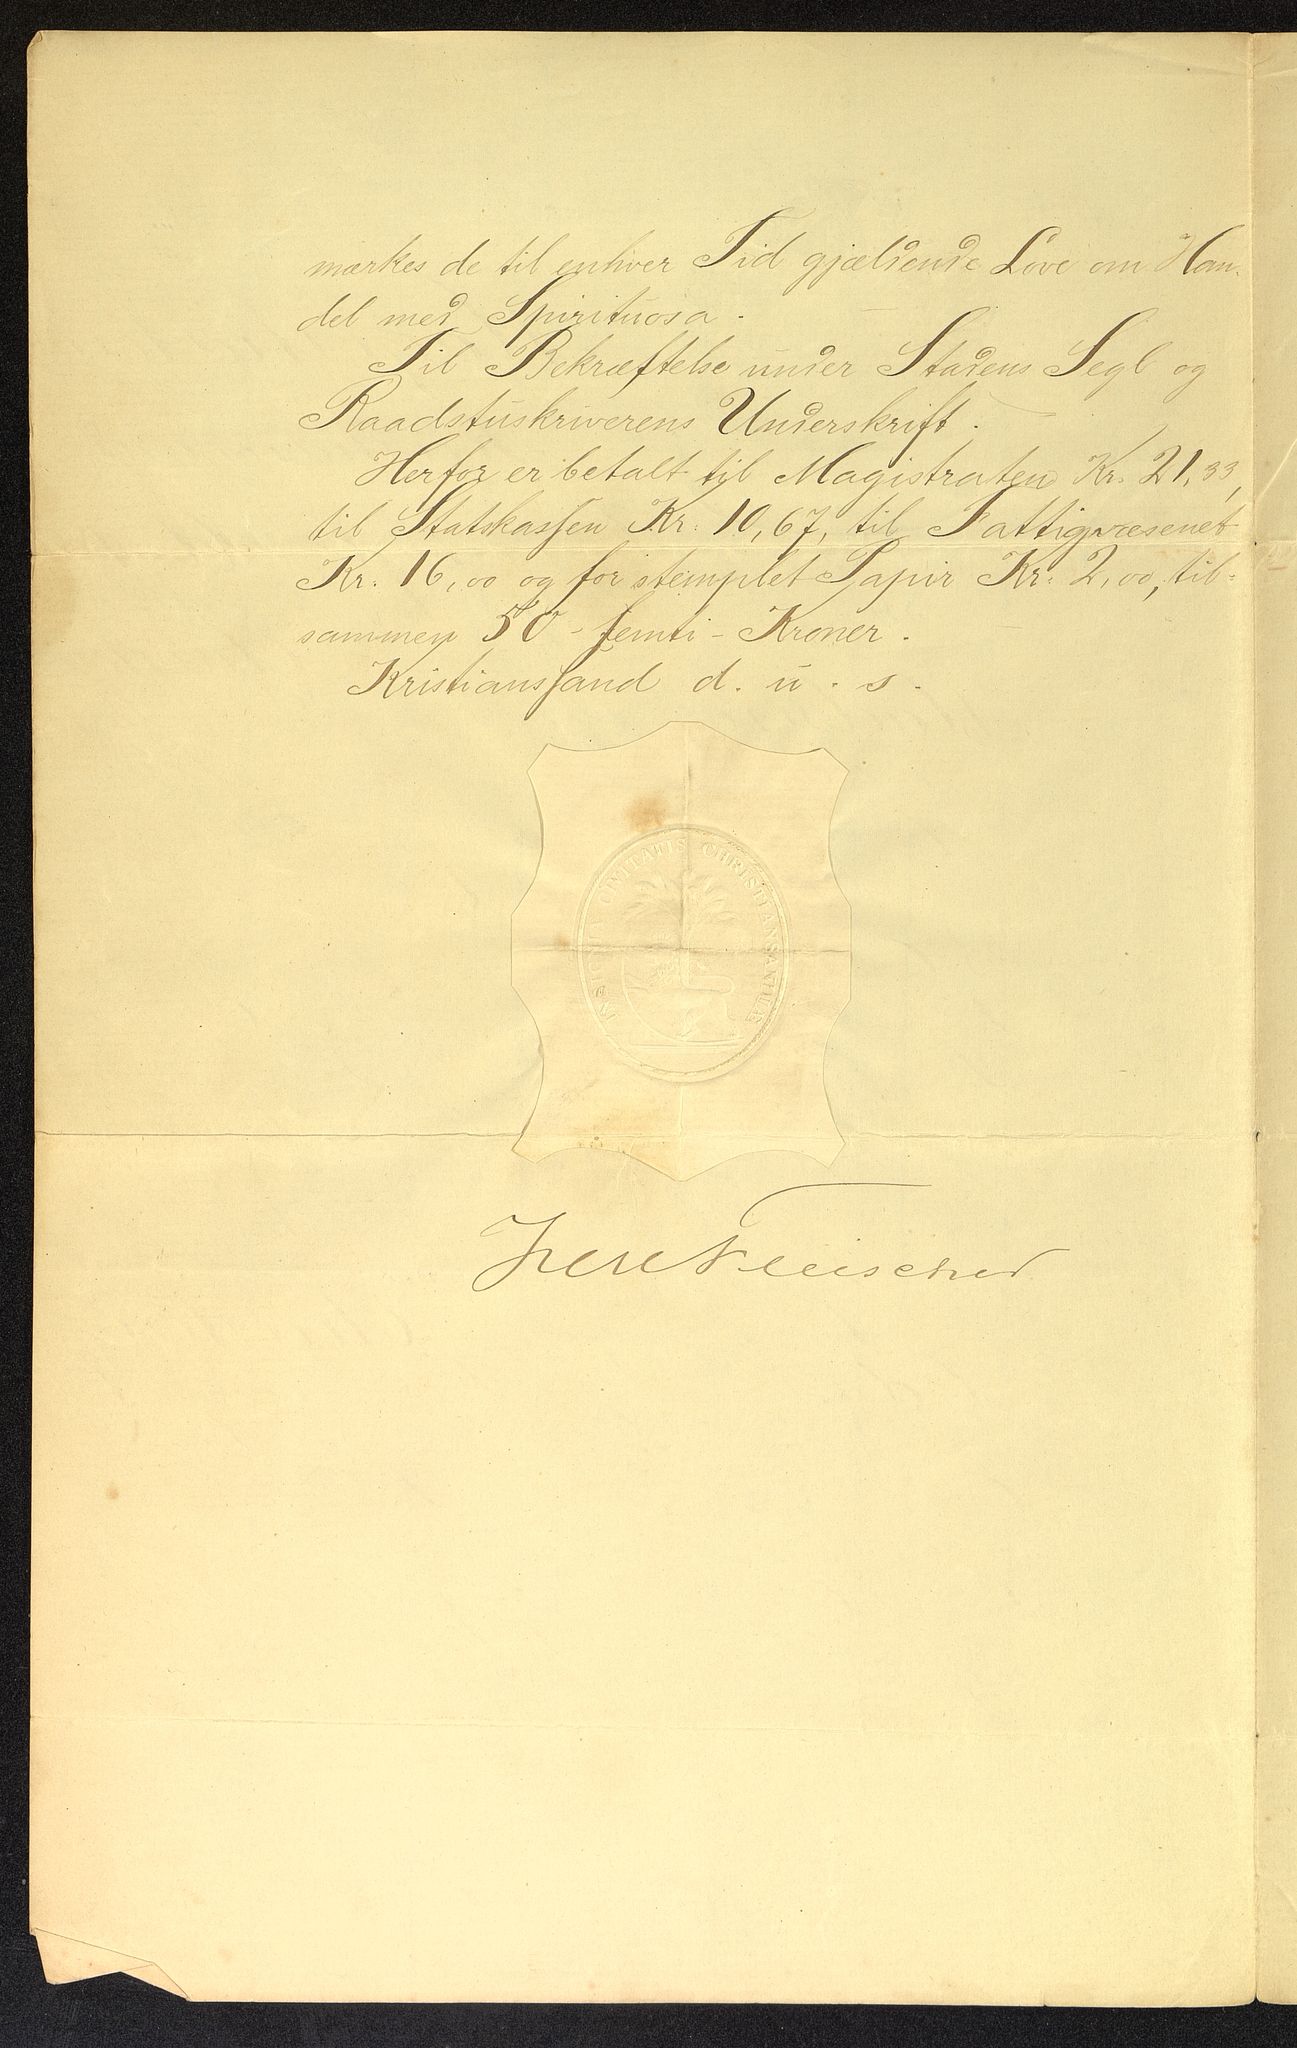 mærkes de til enhver Tid gjældende Love om Han-
del med Spirituosa.
Til Bekræftelse under Stadens Segl og
Raadstuskriverens Underskrift.
Herfor er betalt til Magistraten Kr. 21,33,
til Statskassen Kr. 10,67, til Fattigvæsenet
Kr. 16,00 og for stemplet Papir Kr. 2,00, til-
sammen 50 - femti - Kroner.
Kristianssand d. u. s.
INSIGNIA CIVITATIS CHRISTIANSANDIÆ
Fleischer